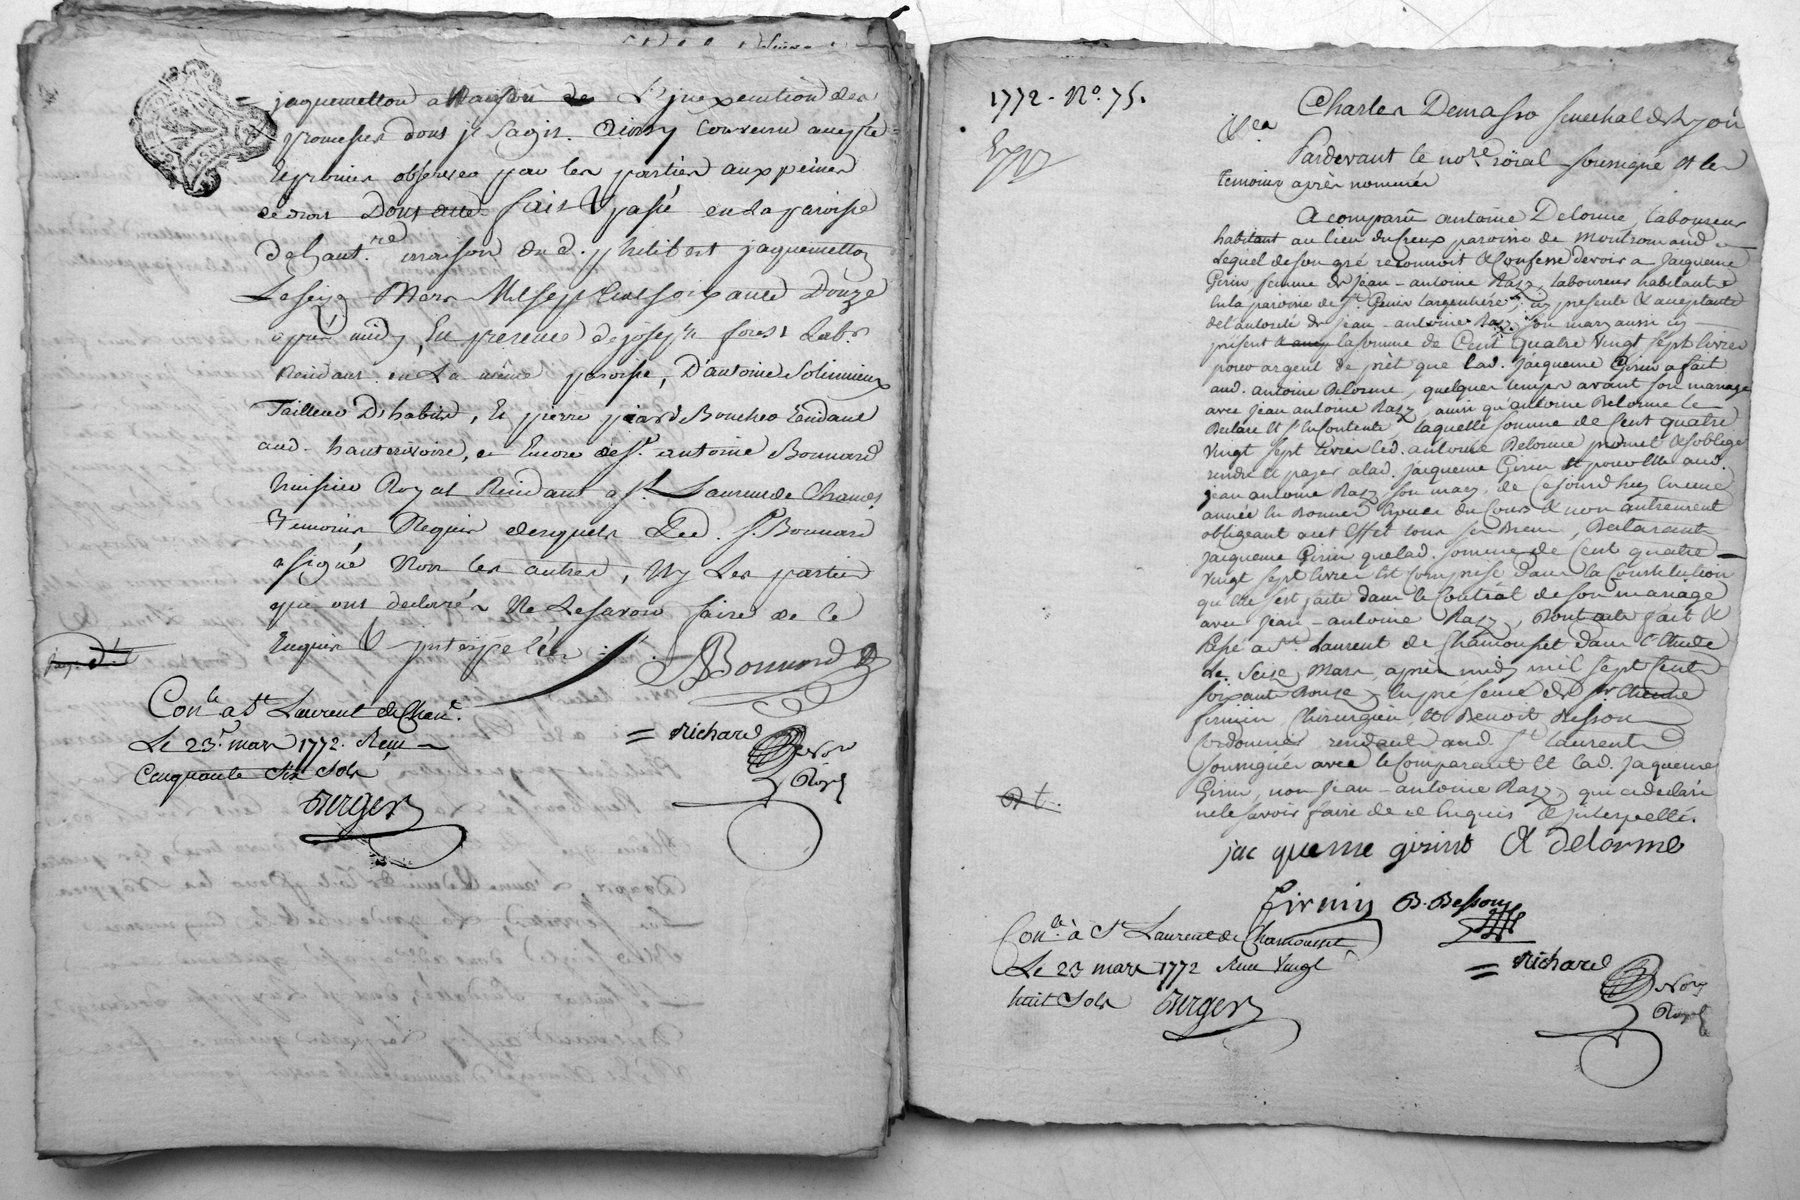 jaquemetton a Raison de L'inexecution des
promesses dont il s'agit. Ainsy convenu accepté
et promis observer par les parties aux peines
de droit Dont acte fait & passé en la paroisse
de haut.re maison du d. philibert jaquemetton
Le seize Mars Mil sept Cent soixante Douze
après midy, En presence de joseph forest Lab.r
Residant en La même paroisse, D'antoine Solinnieux
Tailleur D'habits, et pierre Boucher Residant
aud. hauterivoire, et Encore de S.r antoine Bonnard
huissier Royal Residant a S.t Laurent de Chamos.
Temoins Requis desquels Led. S.r Bonnard
a signé Non les autres, Ny Les parties
qui ont declarés Ne Le savoir faire de ce
Enquis & interpellés
Bonnard
Con.lé a S.t Laurent de Cham.t
Le 23.e mars 1772. Reçu
Cinquante Six Sols
Berger
= Richard
No.re
Royal
1772 - N.o 75.
Exp
Charles Demasso senechal de Lyon
Pardevant le no.re roial soussigné et les
temoins après nommés
A comparu antoine Delorme, laboureur
habitant au lieu du creux paroisse de Montromand
Lequel de son gré reconnoit & confesse devoir a Jacqueme
Girin femme de Jean-antoine Razy, laboureur habitante
en la paroisse de S.t Genis Largentiere icy presente & acceptante
de l'autorité de Jean-antoine Razy son mary aussi icy
present la somme de Cent quatre vingt sept livres
pour argent de prêt que lad. Jacqueme Girin a fait
aud. antoine Delorme, quelques temps avant son mariage
avec Jean antoine Razy, ainsi qu'antoine Delorme le
Declare et s'en contente laquelle somme de Cent quatre
vingt sept livres led. antoine Delorme promet & s'oblige
rendre et payer a lad. Jacqueme Girin et pour elle aud.
Jean antoine Razy son mary, de ce jourd'huy en une
année en bonnes especes du cours & non autrement
obligeant a cet effet tous ses Biens, Declarant
Jacqueme Girin que lad. somme de Cent quatre
vingt sept livres est comprise dans la Constitution
qu'elle s'est faite dans le Contrat de son mariage
avec Jean-antoine Razy, Dont acte fait &
Passé a S.t Laurent de Chamousset dans l'Etude
le Seize Mars, après midy mil sept Cent
soixante Douze en presence de S.r Etienne
firmin, Chirurgien, et Benoit Besson
Cordonnier residants aud. S.t Laurent
soussignés avec le comparant et lad. Jacqueme
Girin, non Jean-antoine Razy, qui a declaré
ne le savoir faire de ce Enquis & interpellé.
jac queme girins A delorme
Firmin B. Besson
Con.lé à S.t Laurent de Chamousset
Le 23 mars 1772 Reçu Vingt
huit Sols Berger
= Richard
No.re
Royal